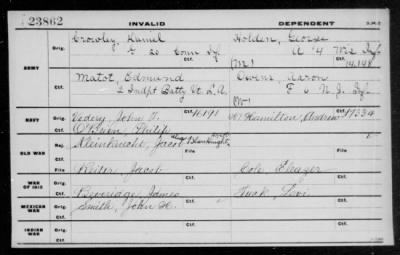 23862 INVALID DEPENDENT
ARMY
Orig. Crowley, Daniel Holden, George
G 20 Conn Inf. A "4 Wis Inf.
Ctf. (M) 14,148
Matot, Edmund Owens, Aaron
2 Indpt Batty Vt. L. A. F 6 N.J. Inf.
(W)
NAVY
Orig. Vedery, John F. 16191 Hamilton, Andrew 19334
Ctf. O'Brien, Philip
OLD WAR
Orig. Kleinknecht, Jacob
File File
Ctf. Reiter, Jacob Cole Eleazer
WAR OF 1812
Orig.
Ctf. Beveridge, James Twak, Levi
MEXICAN WAR
Orig. Smith, John H.
Ctf.
INDIAN WAR
Orig.
Ctf.